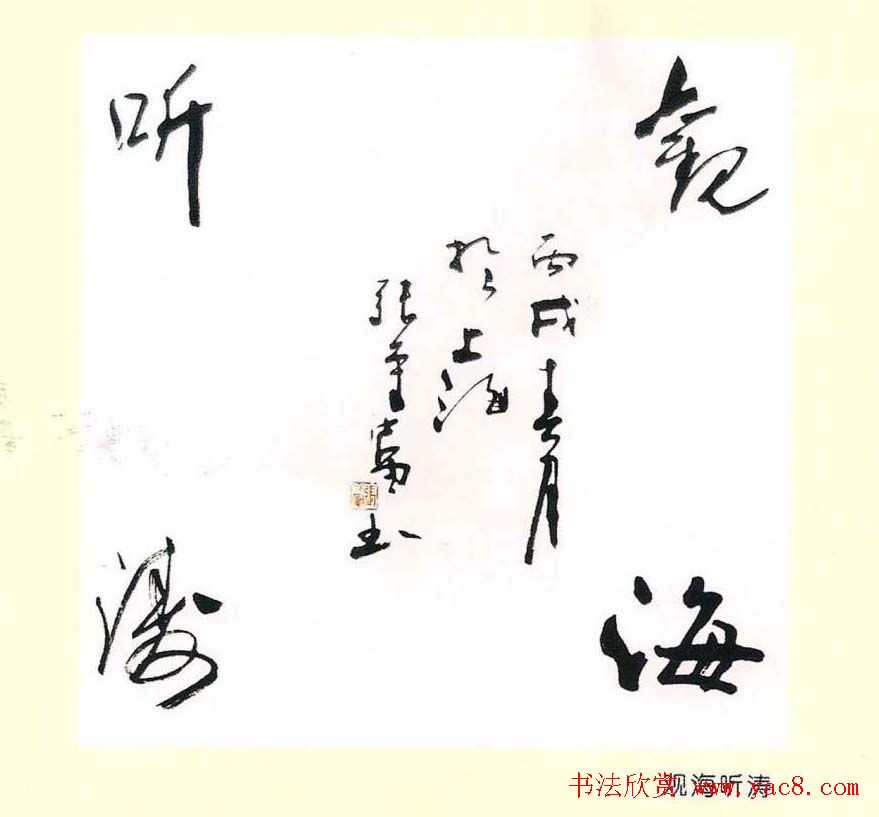 觀海
听濤
丙戌春月
於上海
张
书
观海听涛
书法欣赏 www.yac8.com